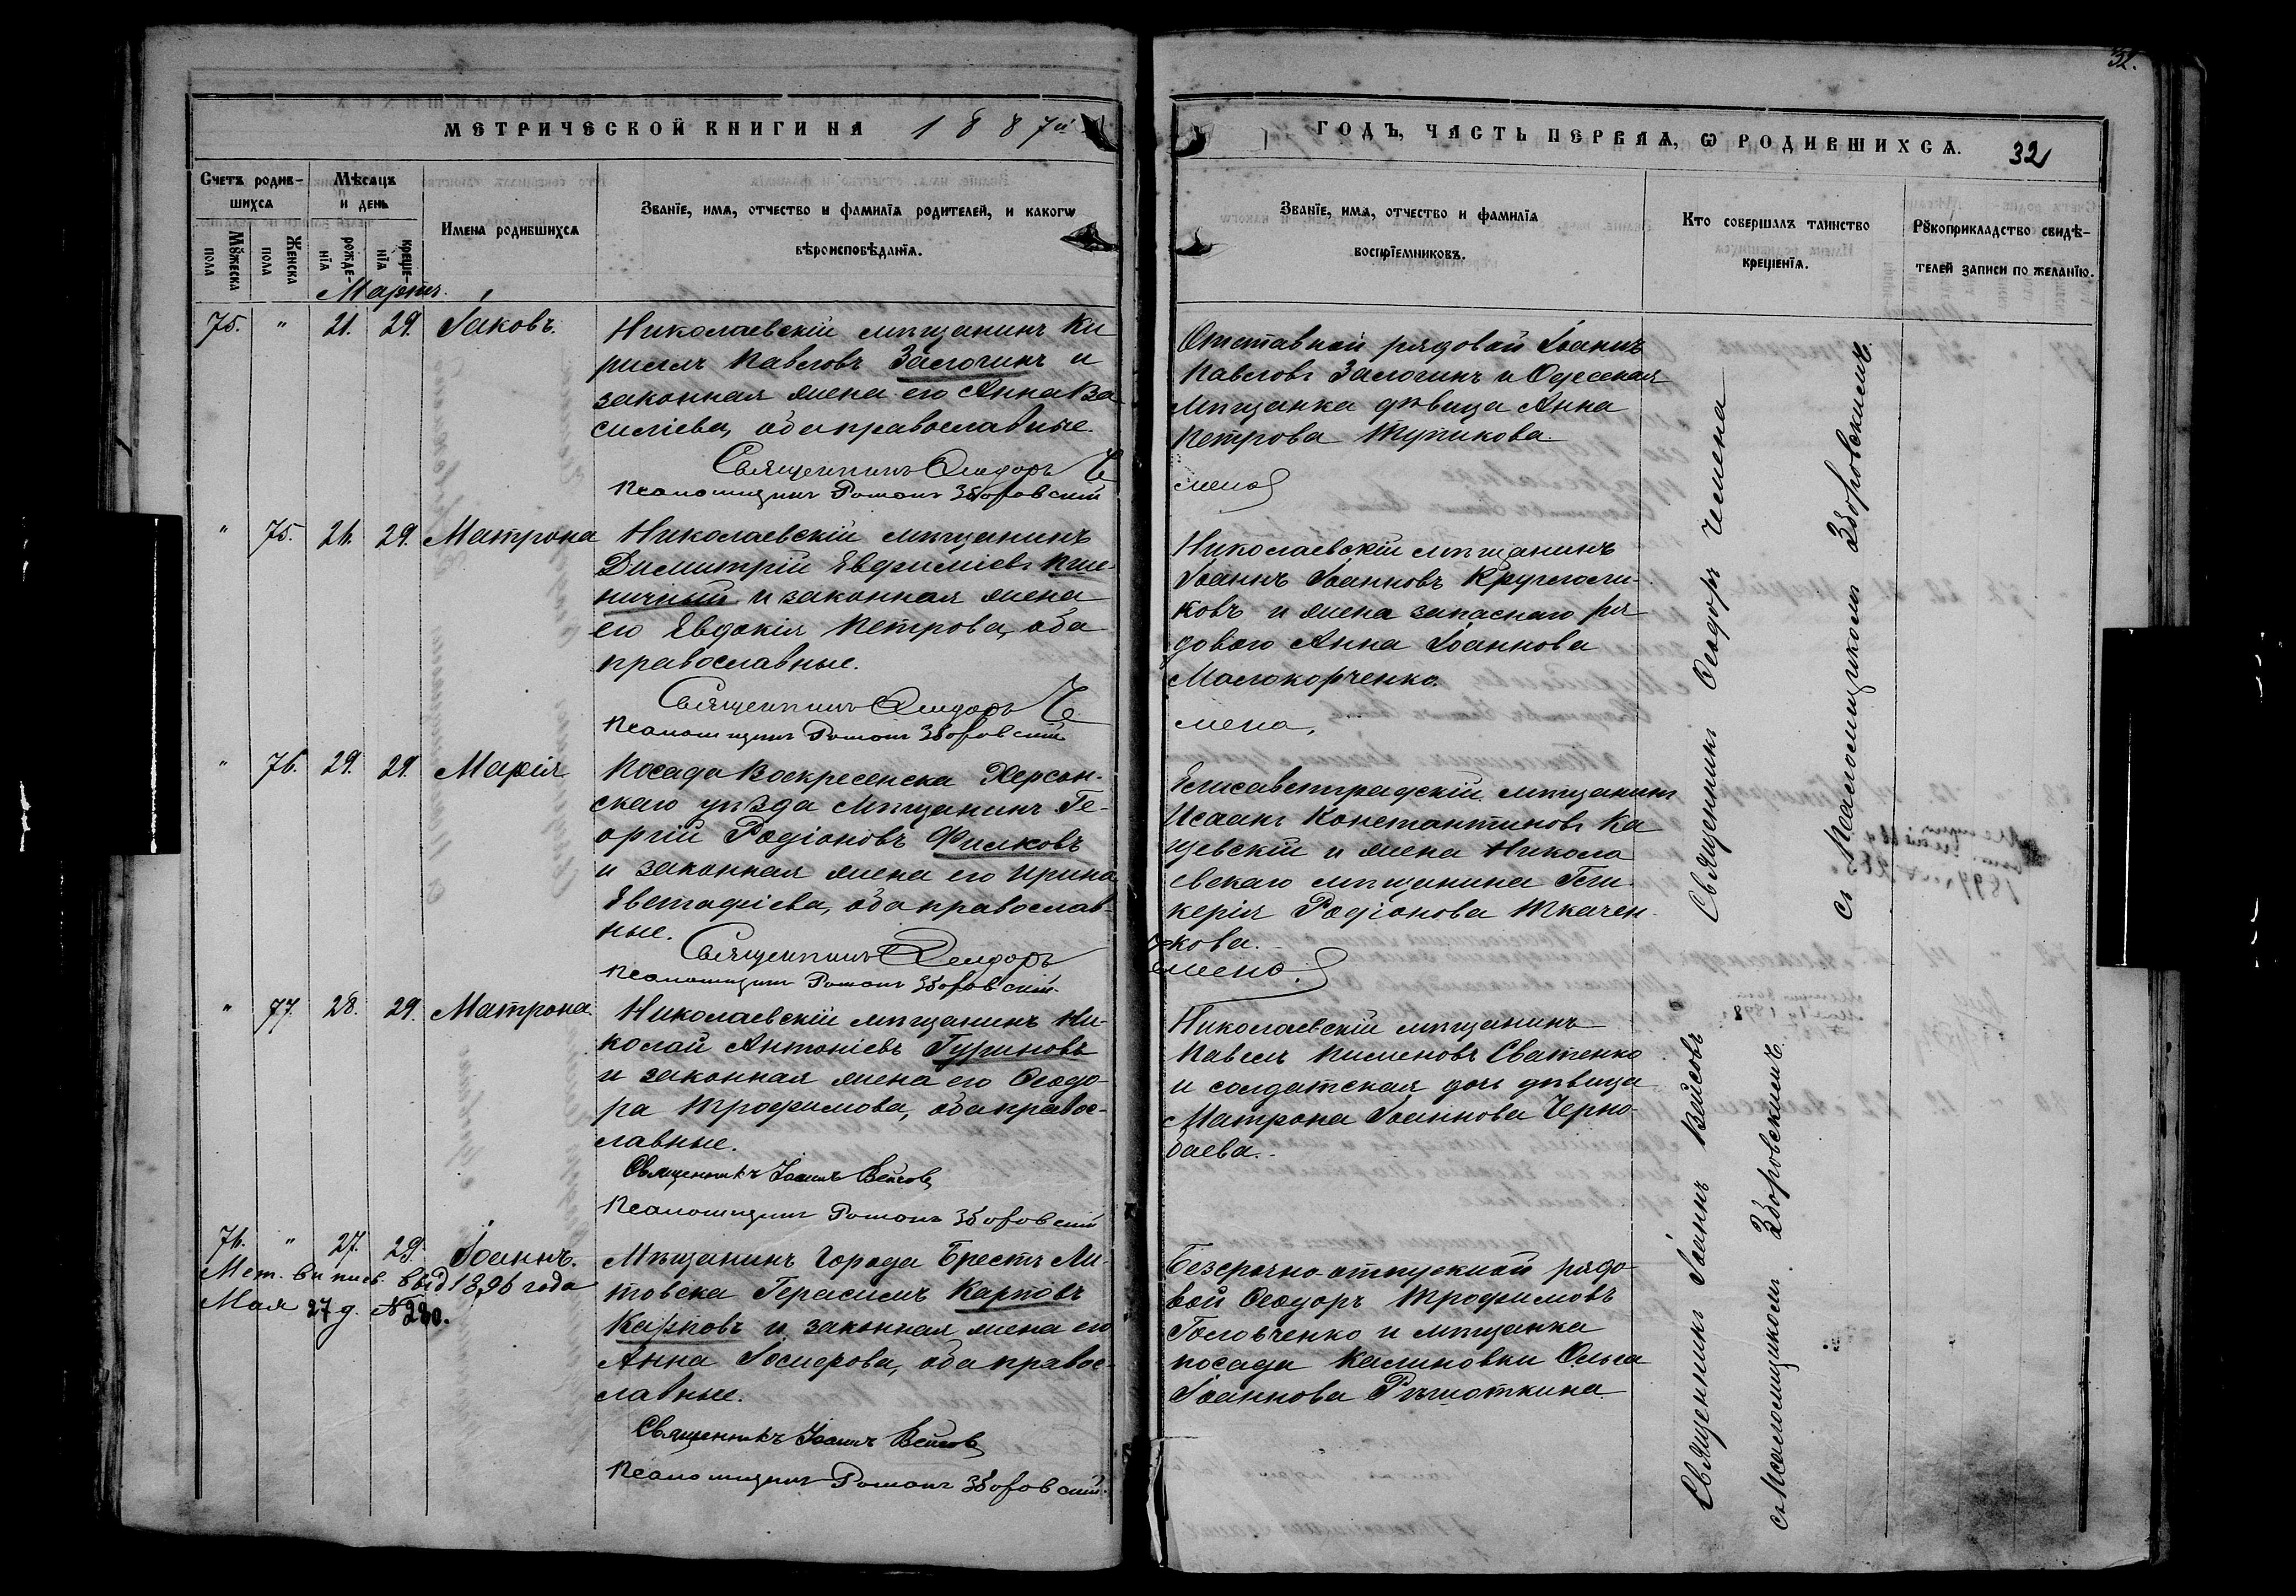 32.
МЕТРИЧЕСКОЙ КНИГИ НА 1887й
ГОДЪ, ЧАСТЬ ПЕРВАЯ, Ѡ РОДИВШИХСѦ. 32
Счетъ родив-
шихсѧ
Мѣсѧцъ
и день
Имена родившихсѧ
Званїе, имѧ, отчество и фамилїѧ родителей, и какогѡ
вѣроисповѣданїѧ.
Мꙋжеска
пола
Женска
пола
рожде-
нїѧ
креще-
нїѧ
Званїе, имѧ, отчество и фамилїѧ
воспрїемниковъ.
Кто совершалъ таинство
крещенїѧ.
Рꙋкоприкладство свидѣ-
телей записи по желанїю.
Мартъ.
75. " 21. 29. Іаковъ.
Николаевскій мѣщанинъ Ки
риллъ Павловъ Залогинъ и
законная жена его Анна Ва
силіева, оба православные.
Священникъ Ѳеодоръ Че
Псаломщикъ Романъ Зборовскій
Отставной рядовой Іоаннъ
Павловъ Залогинъ и Одесская
мѣщанка дѣвица Анна
Петрова Жупикова.
мена
" 75. 21. 29. Матрона
Николаевскій мѣщанинъ
Димитрій Евфиміевъ Пше-
ничный и законная жена
его Евдокія Петрова, оба
православные.
Священникъ Ѳеодоръ Че
Псаломщикъ Романъ Зборовскій
Николаевскій мѣщанинъ
Іоаннъ Іоанновъ Кругли-
ковъ и жена запаснаго ря
дового Анна Іоаннова
Малокорченко.
мена.
" 76. 29. 29. Марія
Посада Воскресенска Херсон-
скаго уѣзда мѣщанинъ Ге-
оргій Родіоновъ Филковъ
и законная жена его Ирина
Евстафіева, оба православ-
ные.
Священникъ Ѳеодоръ
Псаломщикъ Романъ Зборовскій
Елисаветградскій мѣщанинъ
Исаакъ Константиновъ Ка
щевскій и жена Никола
евскаго мѣщанина Гли-
керія Родіонова Ткачен-
кова.
Чемена.
" 77. 28. 29. Матрона.
Николаевскій мѣщанинъ Ни-
колай Антоніевъ Гуриновъ
и законная жена его Ѳеодо-
ра Трофимова, оба правос-
лавные.
Священникъ Іоаннъ Вейсовъ
Псаломщикъ Романъ Зборовскій
Николаевскій мѣщанинъ
Павелъ Пименовъ Сватенко
и солдатская дочь дѣвица
Матрона Іоаннова Черно-
баева.
76. " 27. 29. Іоаннъ.
Мет. выпись выд 1896 года
Мая 27 д. № 280.
Мѣщанинъ города Брестъ Ли-
товска Герасимъ Карповъ
Карповъ и законная жена его
Анна Іосифова, оба правос-
лавные.
Священникъ Іоаннъ Вейсовъ
Псаломщикъ Романъ Зборовскій.
Безсрочно-отпускной рядо-
вой Ѳеодоръ Трофимовъ
Головченко и мѣщанка
посада Калиновки Ольга
Іоаннова Рѣшоткина
Священникъ Ѳеодоръ Чемена
съ Псаломщикомъ Зборовскимъ.
Священникъ Іоаннъ Вейсовъ
съ Псаломщикомъ Зборовскимъ.